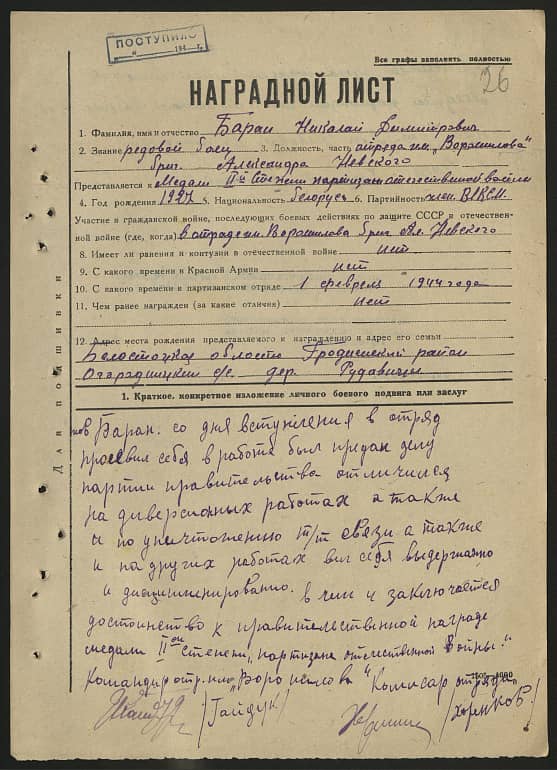 ПОСТУПИЛО
194 г.
Все графы заполнять полностью
26
НАГРАДНОЙ ЛИСТ
1. Фамилия, имя и отчество Баран Николай Димитрович
2. Звание редовой боец 3. Должность, часть отряда им. „Ворошилова"
бриг. Александра Невского
Представляется к Медали IIой Степени партизан отечественной войны
4. Год рождения 1927 5. Национальность белорус 6. Партийность член ВЛКСМ.
Участие в гражданской войне, последующих боевых действиях по защите СССР и отечествен-
ной войне (где, когда) в отряде им. Ворошилова бриг Ал. Невского
8. Имеет ли ранения и контузии в отечественной войне нет
9. С какого времени в Красной Армии нет
10. С какого времени в партизанском отряде 1 февраля 1944 года
11. Чем ранее награжден (за какие отличия) нет
12. Адрес места рождения представляемого к награждению и адрес его семьи
Белостоцкая область Гродненский район
Огародницкий с/с. дер. Рудавицы
Для подшивки
1. Краткое, конкретное изложение личного боевого подвига или заслуг
тов Баран. со дня вступления в отряд
проевил себя в работе был предан делу
партии правительства отличился
на диверсионых работах а также
и по уничтожению т/т связи а также
и на других работах вил себя выдержано
и дисциплинировано. в чем и заключается
достоинство к правительственной награде
медали IIой степени „партизана отечественной войны."
Командир отр. им „Ворошилова" Комисар отряда
/Гайдук/ /Хорьков/